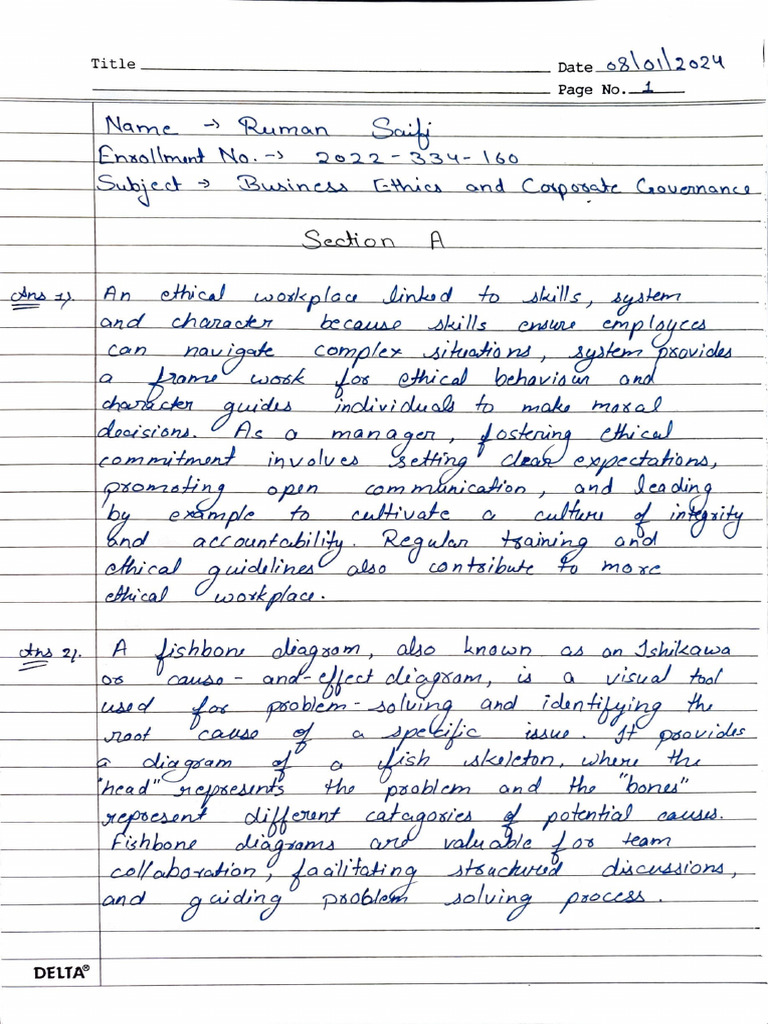 Title
Date 08/01/2024
Page No. 1
Name → Ruman Saifi
Enrollment No. → 2022-334-160
Subject → Business Ethics and Corporate Governance
Section A
Ans 1). An ethical workplace linked to skills, system
and character because skills ensure employees
can navigate complex situations, system provides
a frame work for ethical behaviour and
character guides individuals to make moral
decisions. As a manager, fostering ethical
commitment involves setting clear expectations,
promoting open communication, and leading
by example to cultivate a culture of integrity
and accountability. Regular training and
ethical guidelines also contribute to more
ethical workplace.
Ans 2). A fishbone diagram, also known as an Ishikawa
or cause-and-effect diagram, is a visual tool
used for problem-solving and identifying the
root cause of a specific issue. It provides
a diagram of a fish skeleton, where the
"head" represents the problem and the "bones"
represent different catagories of potential causes.
Fishbone diagrams are valuable for team
collaboration, facilitating structured discussions,
and guiding problem solving process.
DELTA®